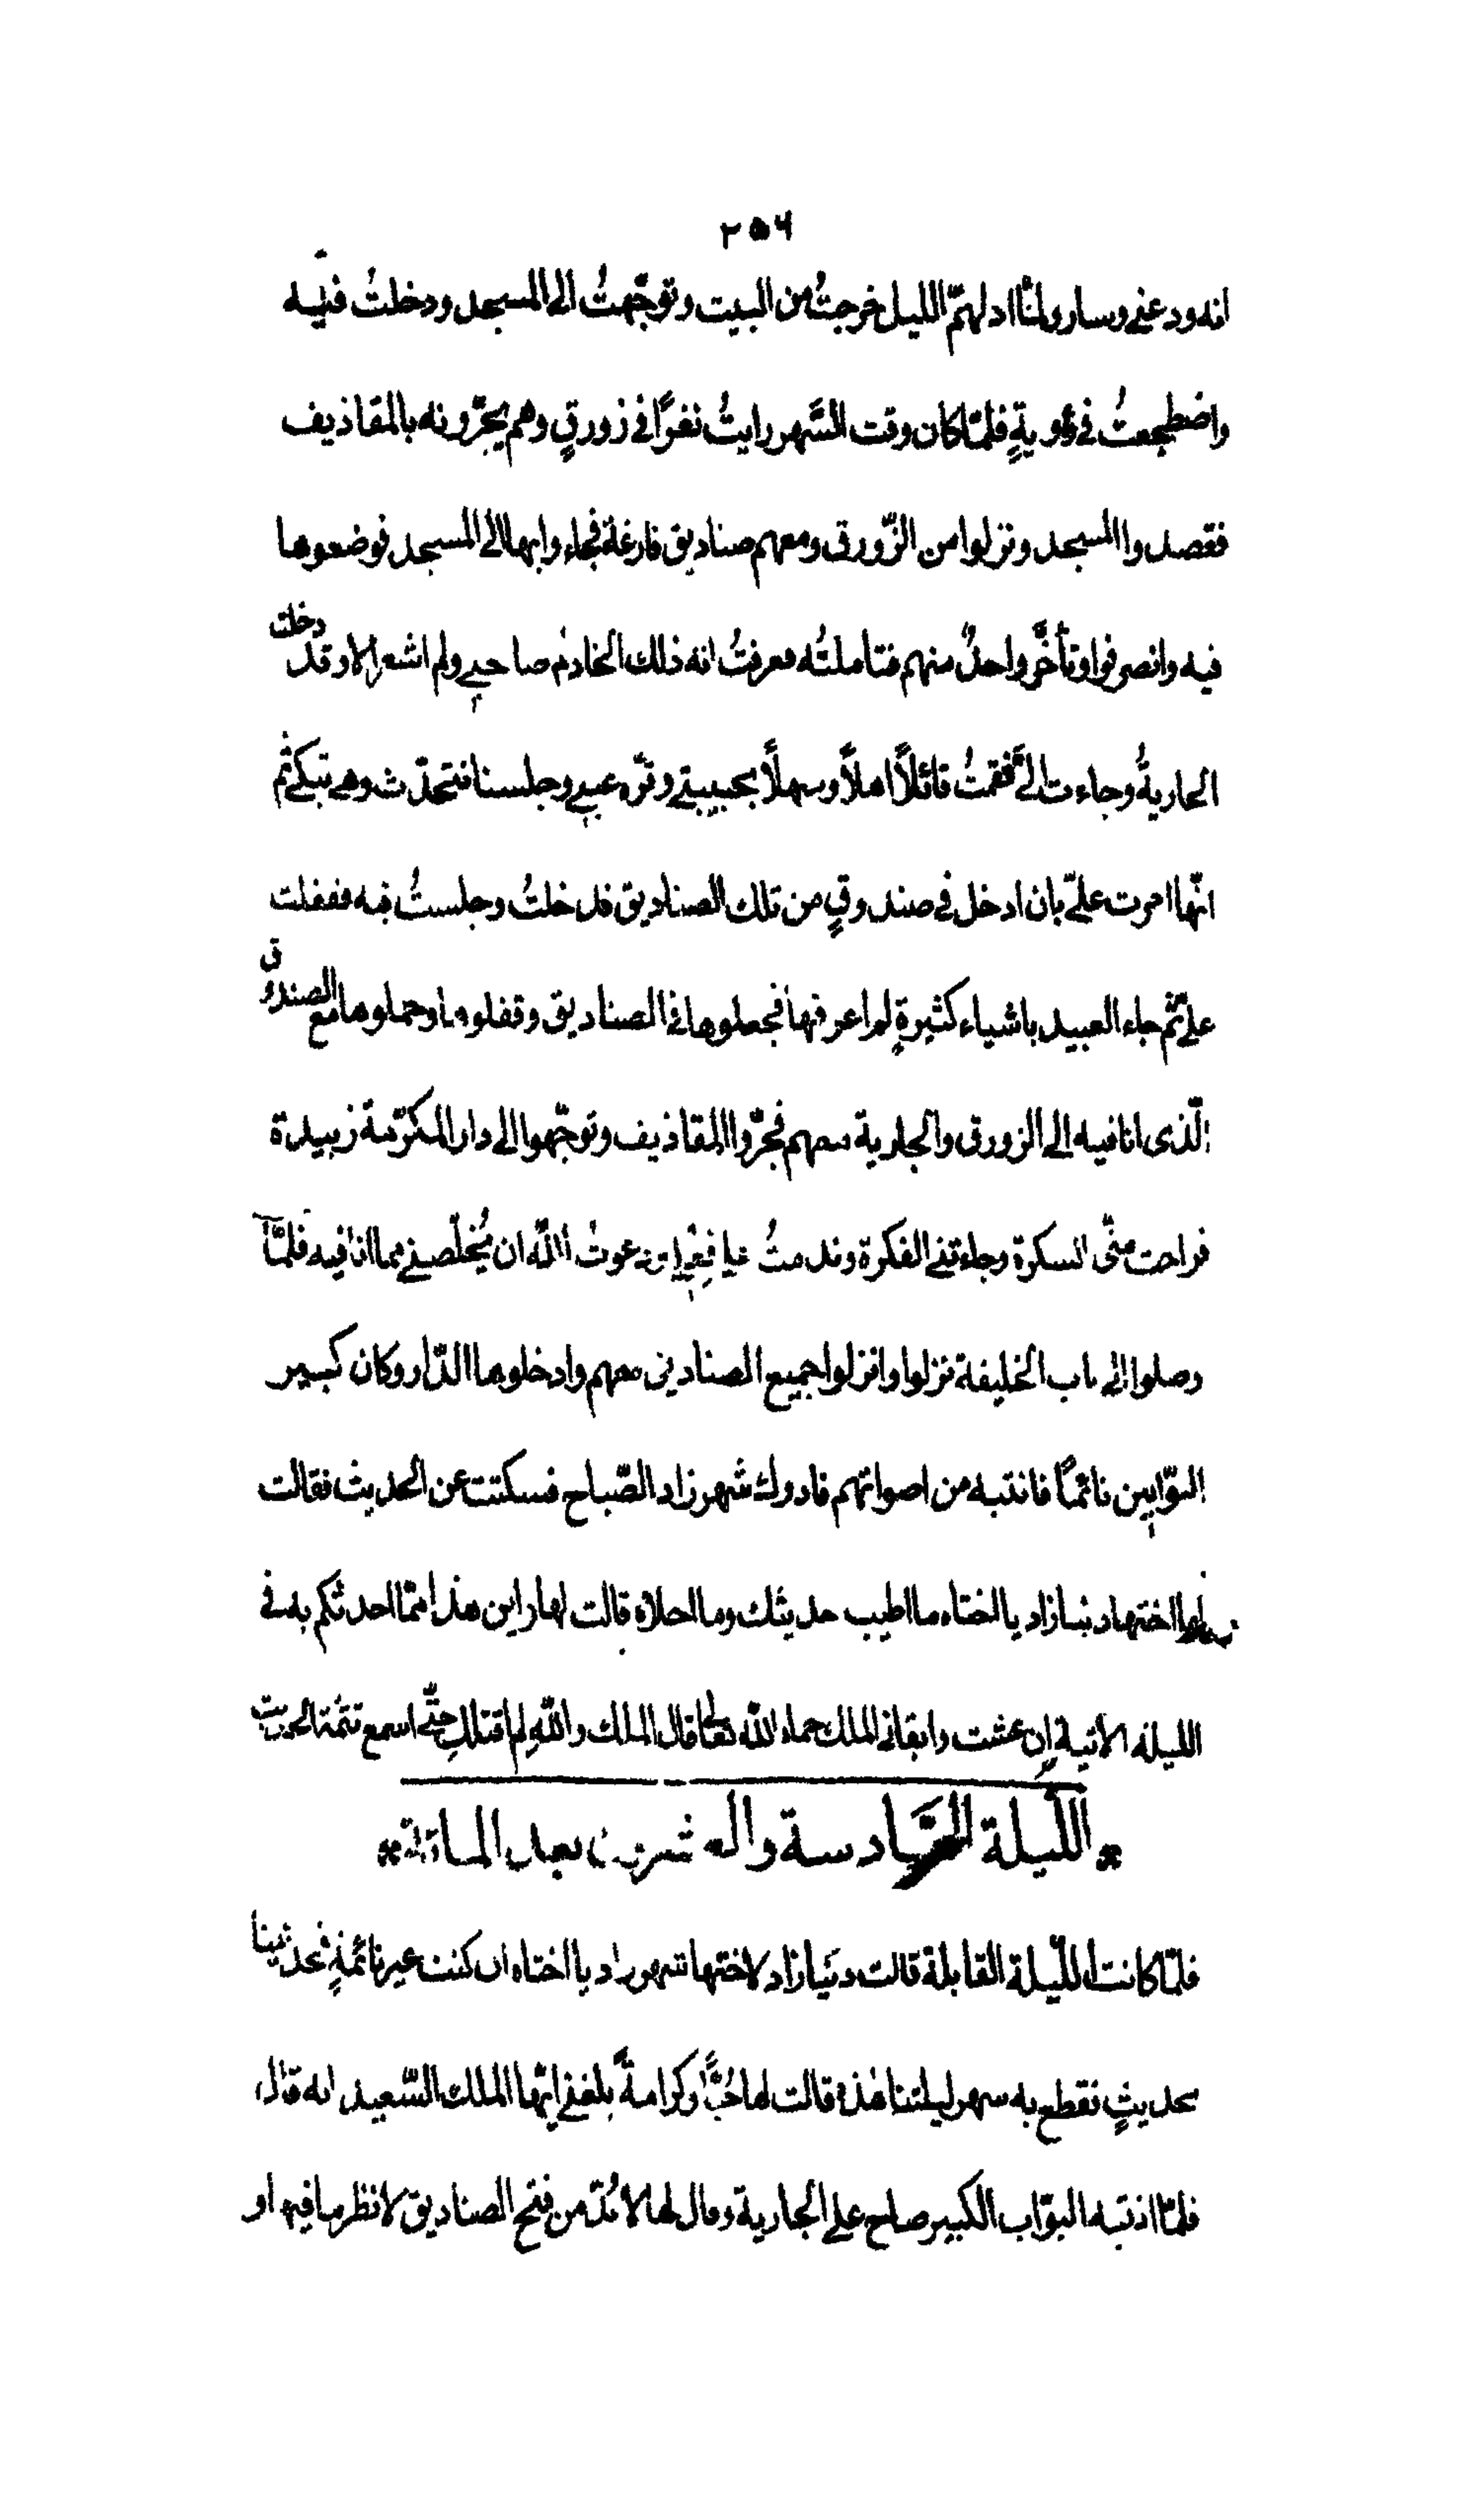 ٢٥٦
انه ودعني وسار ولمّا ادلهمّ الليل خرجتُ من البيت وتوجّهتُ الى المسجد ودخلتُ فيه
واضطجعتُ في زاويةٍ فلمّا كان وقت السَّهر رايتُ نفرًا في زورقٍ وهم يجرّونه بالمقاذيف
فقصدوا المسجد ونزلوا من الزّورق ومعهم صناديق فارغة فجاءوا بها الى المسجد فوضعوها
فيه وانصرفوا وتأخّر واحدٌ منهم فتاملتُه فعرفتُ انه ذلك الخادمُ صاحبي ولم اشعر الا وقد دخلت
الجاريةُ وجاءت اليَّ فقمتُ قائلًا اهلًا وسهلًا بحبيبتي وقرّة عيني وجلسنا نتحدّث وهي تبكي ثم
انّها امرت عليّ بان ادخل في صندوقٍ من تلك الصناديق فدخلتُ وجلستُ فيه فقفلت
عليّ ثم جاء العبيد باشياء كثيرةٍ لم اعرفها فجعلوها في الصناديق وقفلوها وحملوها مع الصندوق
الّذى انا فيه الى الزورق والجارية معهم فجرّوا المقاذيف وتوجّهوا الى دار المكرّمة زبيدة
فراحت منّى السكرة وجاءتني الفكرة وندمتُ دعوتُ اللّه ان يُخلّصني مما انا فيه فلمّا
وصلوا الى باب الخليفة نزلوا وانزلوا جميع الصناديق معهم وادخلوها الدّار وكان كبير
البوّابين نائمًا فانتبه من اصواتهم فادرك شهرزاد الصّباح فسكتت عن الحديث فقالت
لها اختها دينازاد يا اختاه ما اطيب حديثك وما احلاه قالت لها واين هذا ممّا احدثكم به في
الليلة الاتية إن عشت وابقاني الملك حماه اللّه تعالى قال الملك واللّهِ لم اقتلكِ حتّى اسمع تتمّة الحديث
* الليلة السّادسة والعشرون بعد المائة *
فلمّا كانت اللّيلة القابلة قالت دنيازاد لاختها شهرزاد يا اختاه ان كنت غير نائمةٍ فحدّثينا
بحديثٍ نقطع به سهر ليلتنا هذه قالت لها حُبًّا وكرامةً بلغني ايّها الملك السّعيد انه قال
فلمّا انتبه البوّاب الكبير صاح على الجارية وقال لها لا بُدّ من فتح الصناديق لانظر ما فيها و